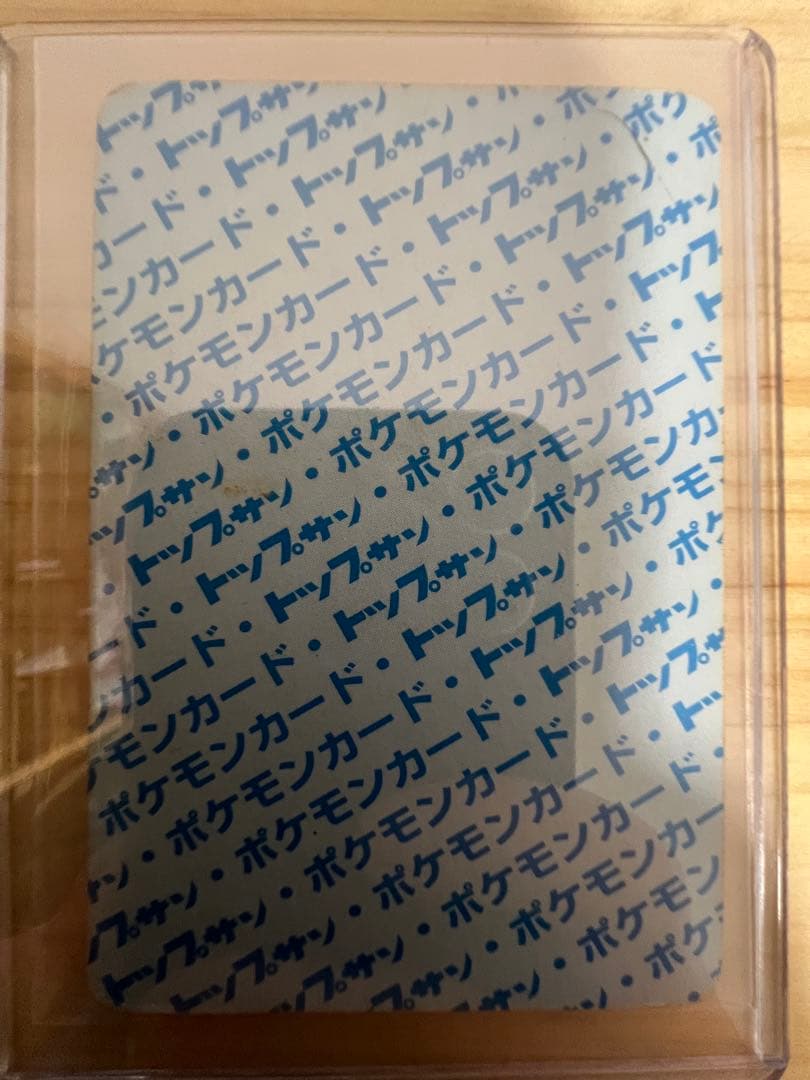 トップ
ド・トップサ
ード・トップサン
ンカード・トップサン・
ケモンカード・トップサン・ポ
・ポケモンカード・トップサン・ポケ
サン・ポケモンカード・トップサン・ポ
ップサン・ポケモンカード・トップサン
・トップサン・ポケモンカード・トップ
ード・トップサン・ポケモンカード・ト
ンカード・トップサン・ポケモンカード
モンカード・トップサン・ポケモンカ
ポケモンカード・トップサン・ポケモン
サン・ポケモンカード・トップサン・ポケ
ップサン・ポケモンカード・トップサン・
トップサン・ポケモンカード・トップサン
トップサン・ポケモンカード・トッ
トップサン・ポケモンカード・
プサン・ポケモンカー
・ポケモン
・ポケ